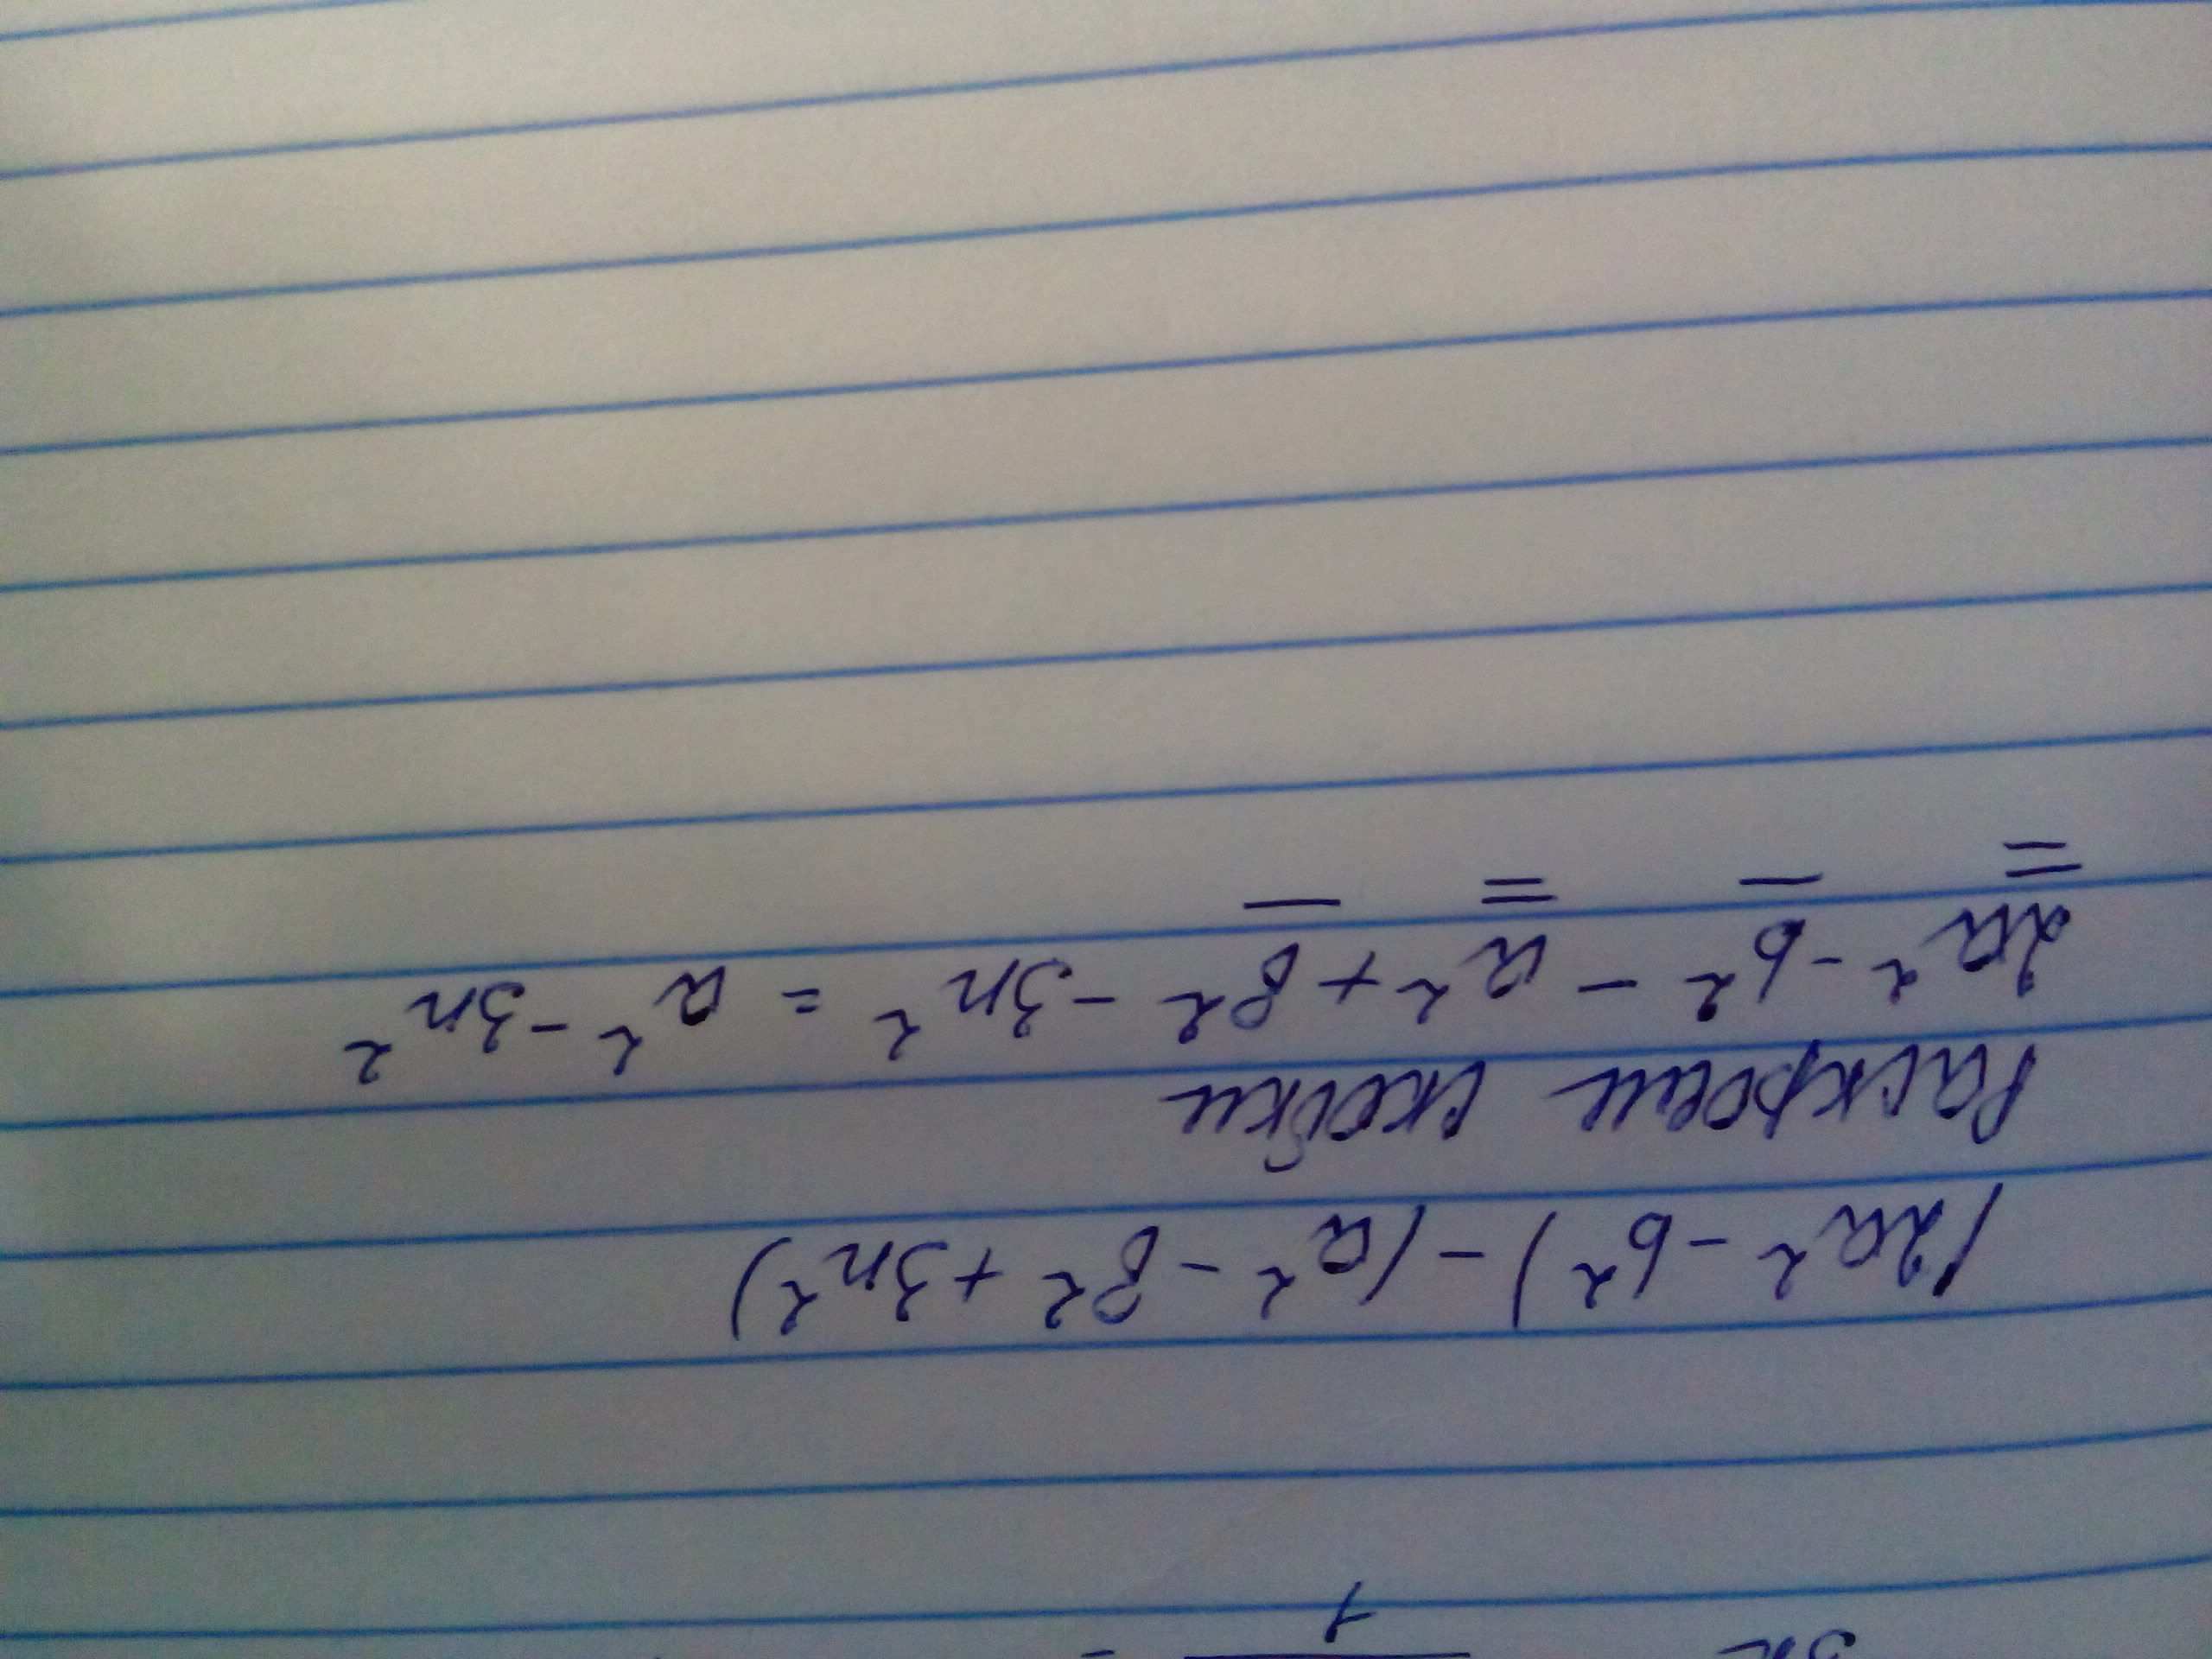 (2a² - b²) - (a² - в² + 3n²)
Раскроем скобки
2a² - b² - a² + в² - 3n² = a² - 3n²